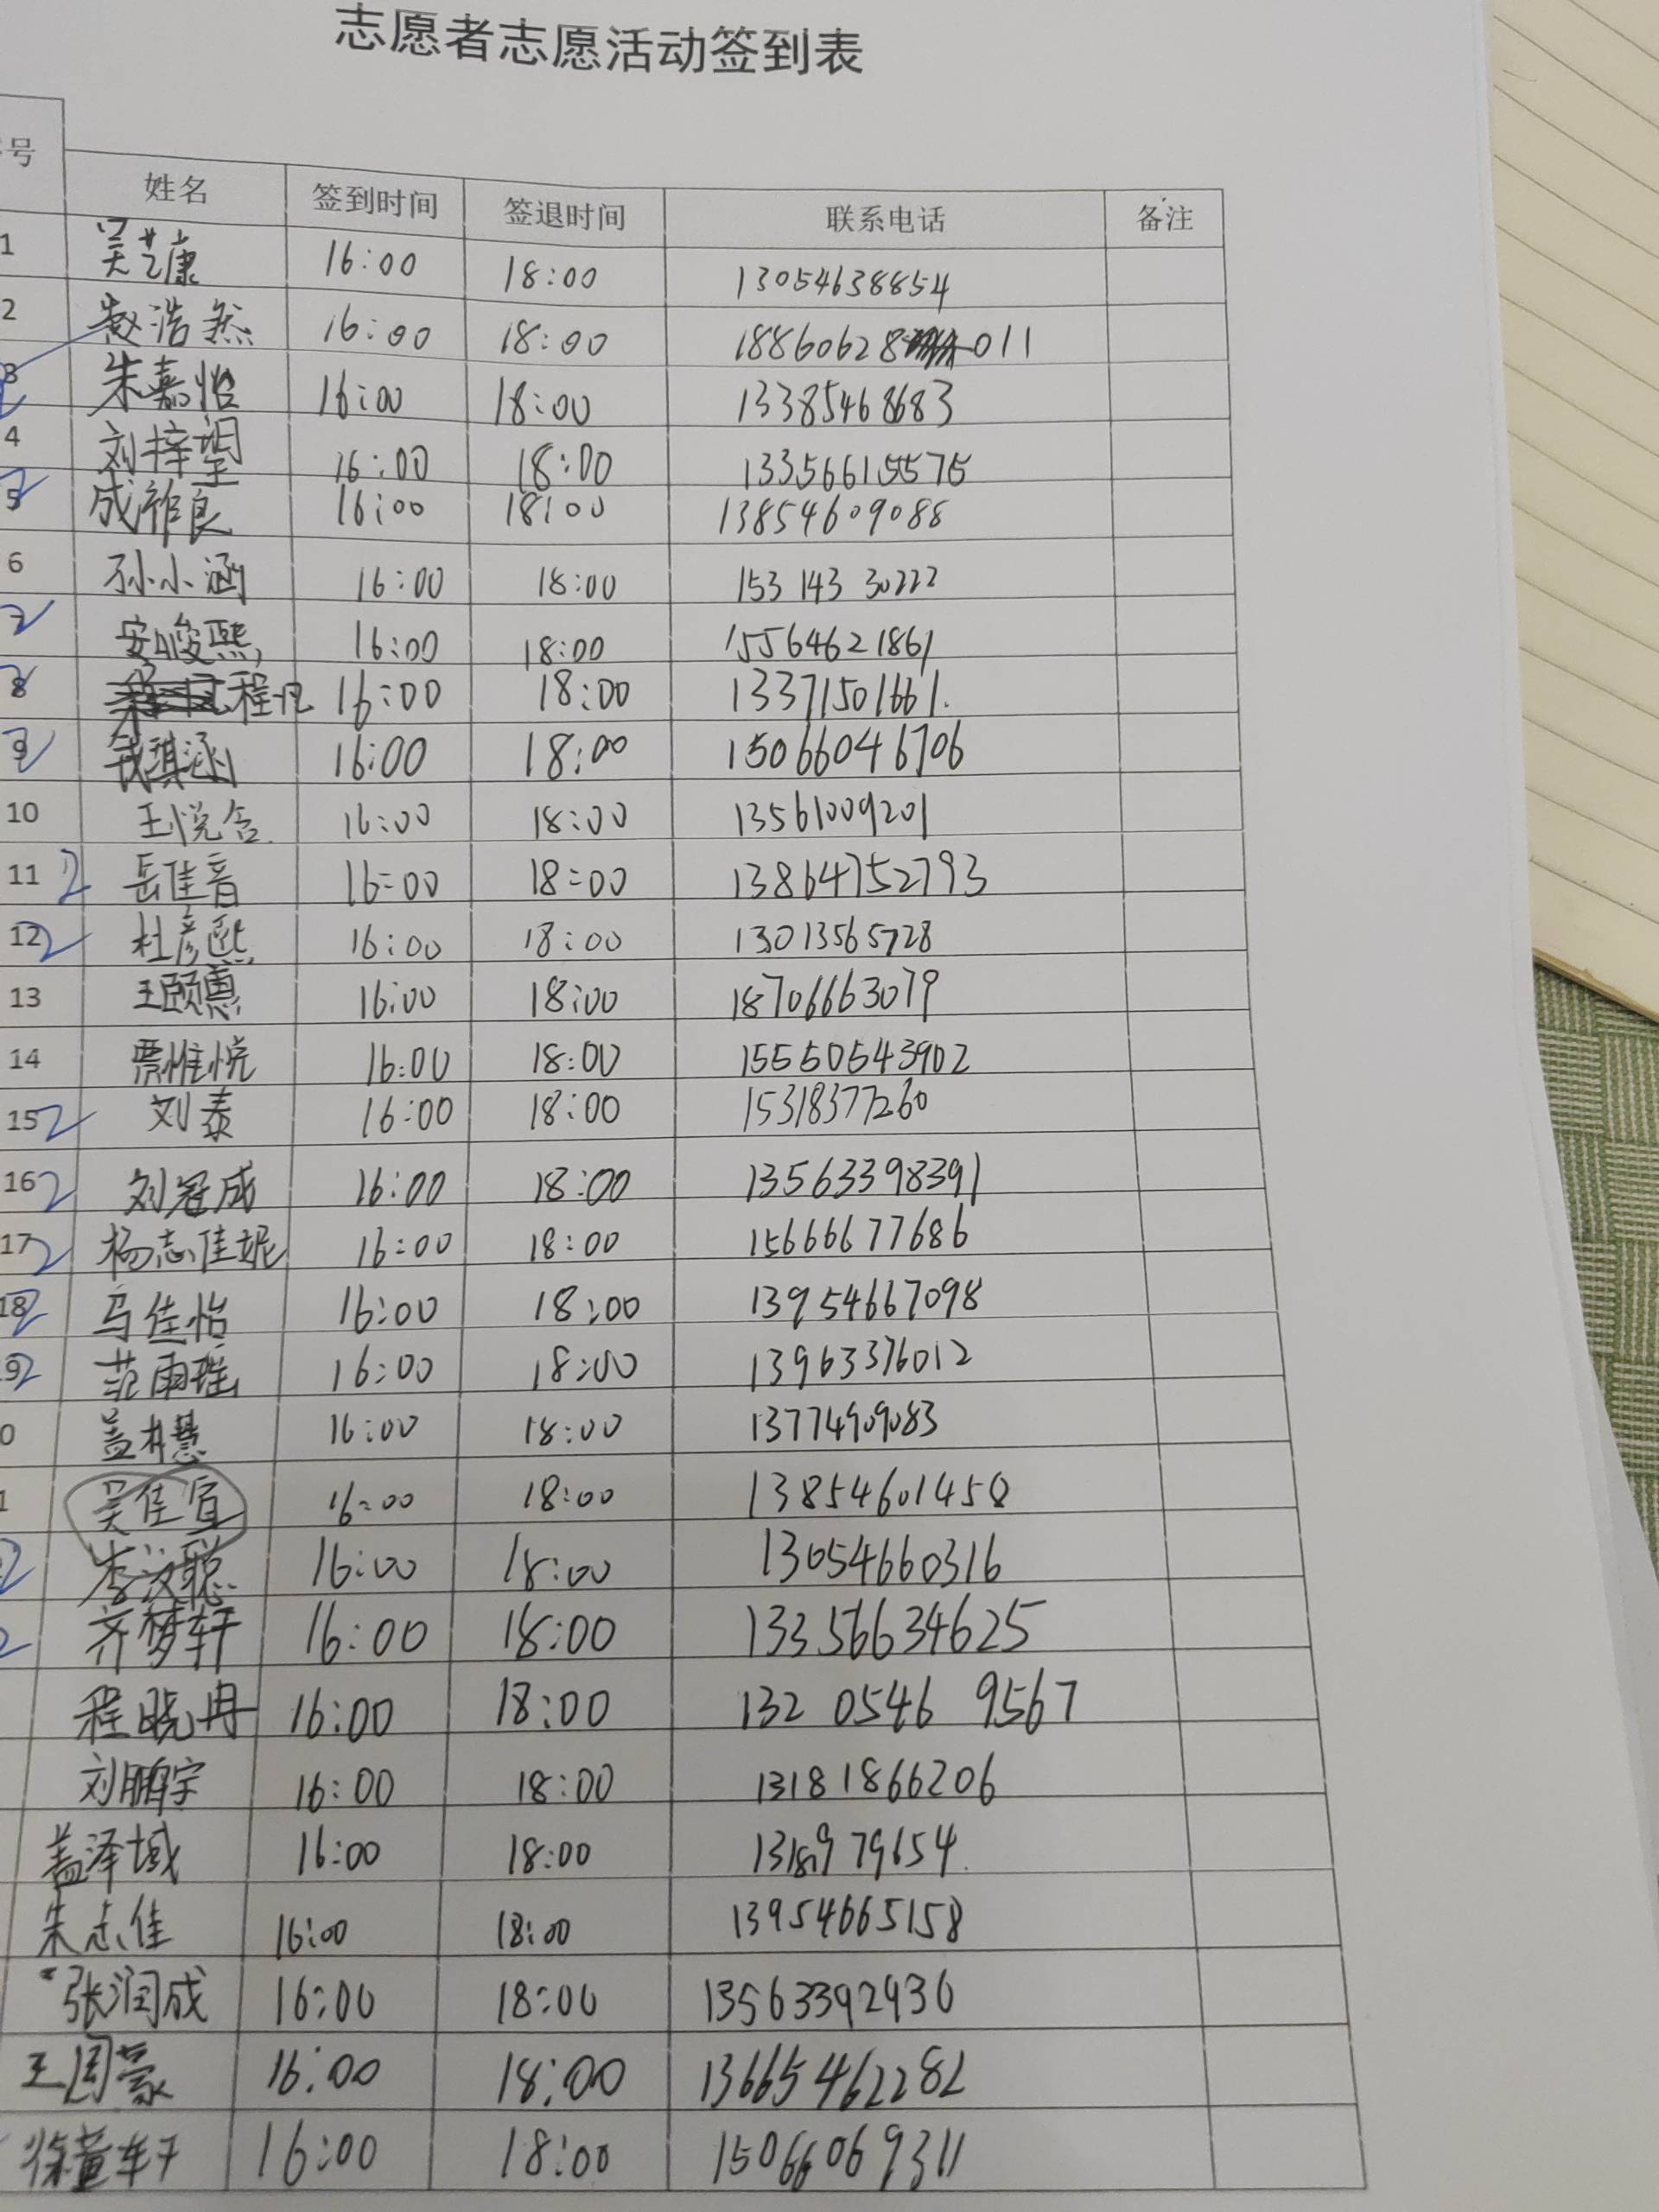 志愿者志愿活动签到表
号 姓名 签到时间 签退时间 联系电话 备注
1 吴艺康 16:00 18:00 13054638854
2 赵浩然 16:00 18:00 18860628 011
3 朱嘉怡 16:00 18:00 13385468683
4 刘梓 16:00 18:00 13356615575
5 成祚良 16:00 18:00 13854609088
6 孙小涵 16:00 18:00 153 143 30222
2 安峻熙 16:00 18:00 15564621861
8 程凡 16:00 18:00 13371501661.
9 钱琪涵 16:00 18:00 15066046706
10 王悦含 16:00 18:00 13561009201
11 2 岳佳音 16:00 18:00 13864752793
12 2 杜彦熙 16:00 18:00 13013565728
13 王颐 16:00 18:00 18706663079
14 贾惟悦 16:00 18:00 15550543902
15 2 刘泰 16:00 18:00 15318377260
16 2 刘冠成 16:00 18:00 13563398391
17 2 杨志佳妮 16:00 18:00 15666677686
18 2 马佳怡 16:00 18:00 13954667098
9 2 范雨瑶 16:00 18:00 13963376012
0 盖 慧 16:00 18:00 13774909083
1 吴佳宜 16:00 18:00 13854601458
2 李汶聪 16:00 18:00 13054660316
2 齐梦轩 16:00 18:00 13356634625
程晓冉 16:00 18:00 132 0546 9567
刘鹏宇 16:00 18:00 13181866206
盖泽域 16:00 18:00 79654
朱志佳 16:00 18:00 13954665158
张润成 16:00 18:00 13563392930
王周蒙 16:00 18:00 13665462282
徐董轩 16:00 18:00 15066069311